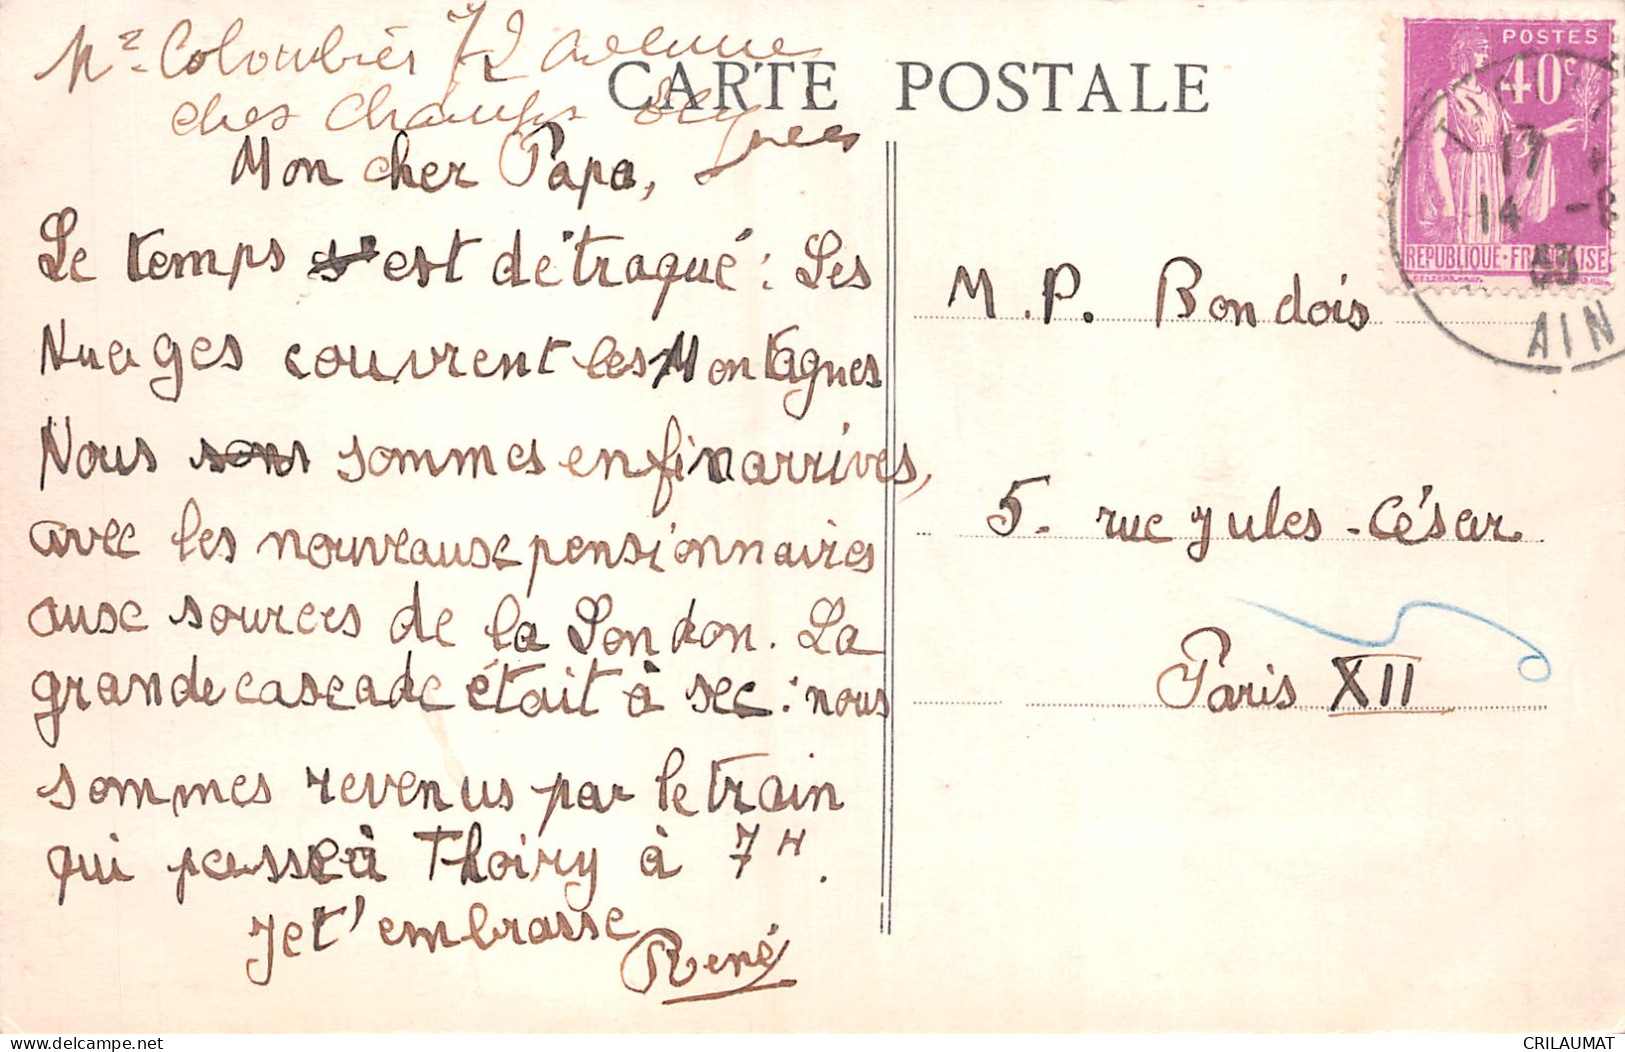 Mr Colombiés 72 avenue
des Champs Elysees
CARTE POSTALE
Mon cher Papa,
Le temps s'est détraqué : Les
Nuages couvrent les Montagnes
Nous sons sommes enfin arrivés,
avec les nouveaux pensionnaires
aux sources de la London. La
grande cascade était à sec : nous
sommes revenus par le train
qui passe à Thoiry à 7 H.
Je t'embrasse
René
M. P. Bondois
5 - rue Jules - César
Paris XII
POSTES
40c
REPUBLIQUE-FRANÇAISE
17
14
AIN
CRILAUMAT